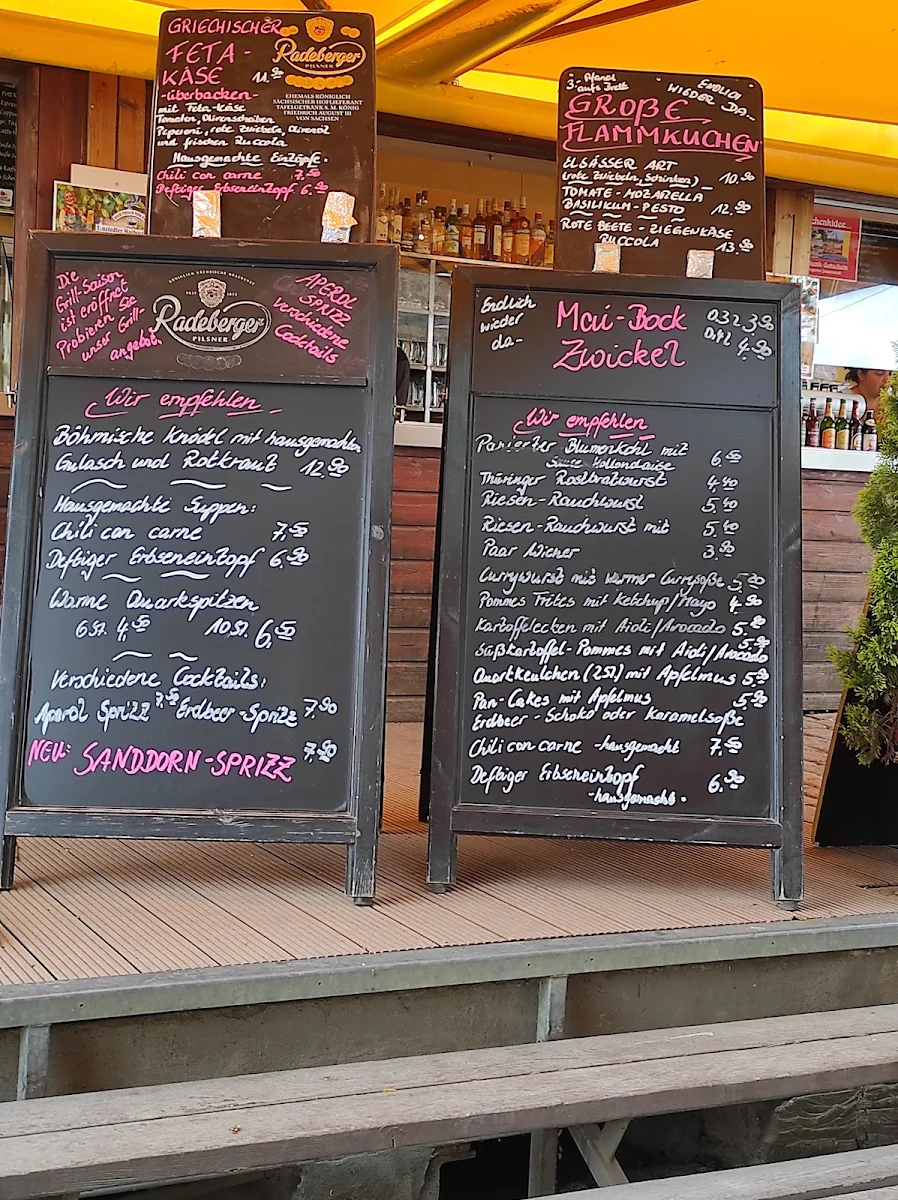 GRIECHISCHER
FETA-
KÄSE 11.90
-überbacken-
mit Feta-Käse
Tomaten, Olivenscheiben
Peperoni, rote Zwiebeln, Olivenöl
und frischen Ruccola
Hausgemachte Eintöpfe.
Chili con carne 7.50
Deftiger Erbseneintopf 6.90
Radeberger
PILSNER
EHEMALS KÖNIGLICH
SÄCHSISCHER HOFLIEFERANT
TAFELGETRÄNK S. M. KÖNIG
FRIEDRICH AUGUST III
VON SACHSEN
3-
aufs Brett
ENDLICH
WIEDER DA-
GROßE
FLAMMKUCHEN
ELSÄSSER ART
(rote Zwiebeln, Schinken) 10.90
TOMATE-MOZARELLA
BASILIKUM-PESTO 12.90
ROTE BEETE-ZIEGENKÄSE
RUCCOLA 13.90
Die
Grill-Saison
ist eröffnet
Probieren Sie
unser Grill-
angebot.
Radeberger
PILSNER
APEROL
SPRIZZ
Verschiedene
Cocktails
Wir empfehlen
Böhmische Knödel mit hausgemachten
Gulasch und Rotkraut 12.90
Hausgemachte Suppen:
Chili con carne 7,50
Deftiger Erbseneintopf 6.90
Warme Quarkspitzen
6St. 4.50 10St. 6,50
Verschiedene Cocktails:
Aperol Sprizz 7.50 Erdbeer-Sprizz 7.90
NEU: SANDDORN-SPRIZZ 7,90
Endlich
wieder
da-
Mai-Bock
Zwickel
0,3 l 3,90
4.90
Wir empfehlen
Panierter Blumenkohl mit
Sauce Hollondaise 6.50
Thüringer Rostbratwurst 4.40
Riesen-Rauchwurst 5.40
Riesen-Rauchwurst mit 5.40
Paar Wiener 3.90
Currywurst mit warmer Currysoße 5.20
Pommes Frites mit Ketchup/Mayo 4.90
Kartoffelecken mit Aioli/Avocado 5.90
Süßkartoffel-Pommes mit Aioli/Avocado 5.90
Quarkkeulchen (2St) mit Apfelmus 5.90
Pan-Cakes mit Apfelmus 5.90
Erdbeer-Schoko oder Karamelsoße
Chili con carne -hausgemacht 7.50
Deftiger Erbseneintopf 6.90
-hausgemacht.